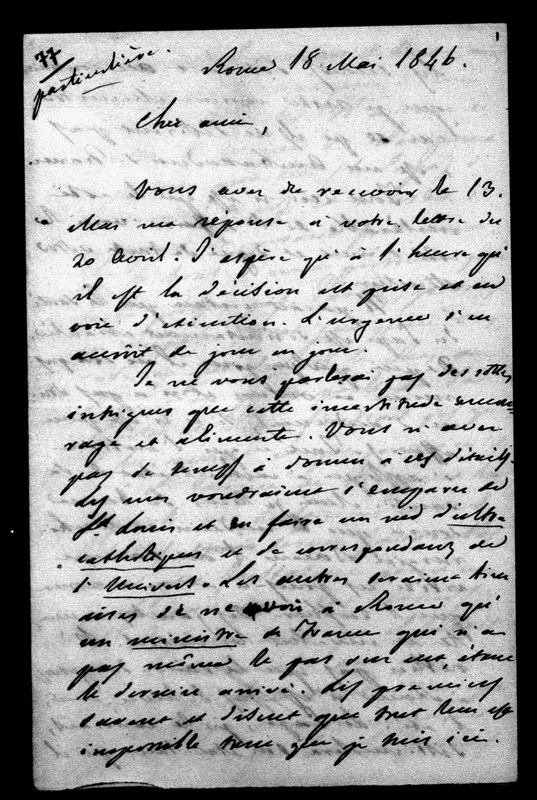 77
particulière.
1
Rome 18 Mai 1846.
Cher ami,
Vous avez dû recevoir le 13.
Mai ma réponse à votre lettre du
20 avril. J'espère qu'à l'heure qu'
il est la décision est prise et en
voie d'exécution. L'urgence s'en
accroît de jour en jour.
Je ne vous parlerai pas des sottes
intrigues que cette incertitude encou-
rage et alimente. Vous n'avez
pas de temps à donner à ces détails.
Les uns voudraient s'emparer de
St Louis et en faire un nid d'ultra
catholiques et de correspondants de
l'Univers. Les autres seraient
de ne voir à Rome qu'
un ministre de France qui n'a
pas même le pas sur eux, étant
le dernier arrivé. Les premiers
savent et disent que tout leur est
impossible tant que je suis ici.